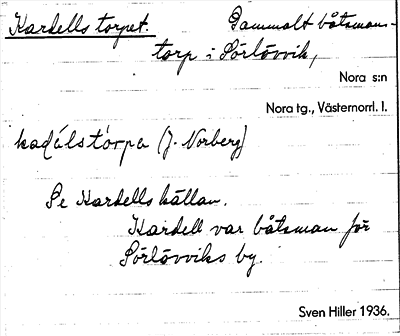 Kardells torpet. Gammalt båtsmans-
torp i Sörlövvik,
Nora s:n
Nora tg., Västernorrl. l.
kadálstòrpa (J. Norberg)
Se Kardells källan.
Kardell var båtsman för
Sörlövviks by.
Sven Hiller 1936.